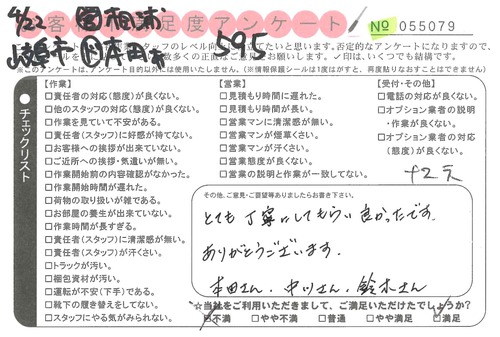 4/22 相浦
お客様満足度アンケート
№ 055079
岐阜市 本田 595
※このアンケートは、アンケート目的以外には使用いたしません。(情報保護シールは1度はがすと、再度貼りなおすことはできません)
チェックリスト
【作業】
□責任者の対応(態度)が良くない。
□他のスタッフの対応(態度)が良くない。
□作業を見ていて不安がある。
□責任者(スタッフ)に好感が持てない。
□お客様への挨拶が出来ていない。
□ご近所への挨拶・気遣いが無い。
□作業開始前の内容確認がなかった。
□作業開始時間が遅れた。
□荷物の取り扱いが雑である。
□お部屋の養生が出来ていない。
□作業時間が長すぎる。
□責任者(スタッフ)に清潔感が無い。
□責任者(スタッフ)が汗くさい。
□トラックが汚い。
□梱包資材が汚い。
□運転が不安(下手)である。
□靴下の履き替えをしてない。
□スタッフにやる気がみられない。
【営業】
□見積もり時間に遅れた。
□見積もり時間が長い。
□営業マンに清潔感が無い。
□営業マンが煙草くさい。
□営業マンが汗くさい。
□営業態度が良くない。
□営業の説明と作業が一致してない。
【受付・その他】
□電話の対応が良くない。
□オプション業者の説明
・作業が良くない。
□オプション業者の対応
(態度)が良くない。
その他、ご意見・ご要望等ありましたらお書き下さい。
とても丁寧にしてもらい良かったです。
ありがとうございます。
本田さん、中川さん、鈴木さん
☆当社をご利用いただきまして、ご満足いただけたでしょうか?
□不満 □やや不満 □普通 □やや満足 □満足